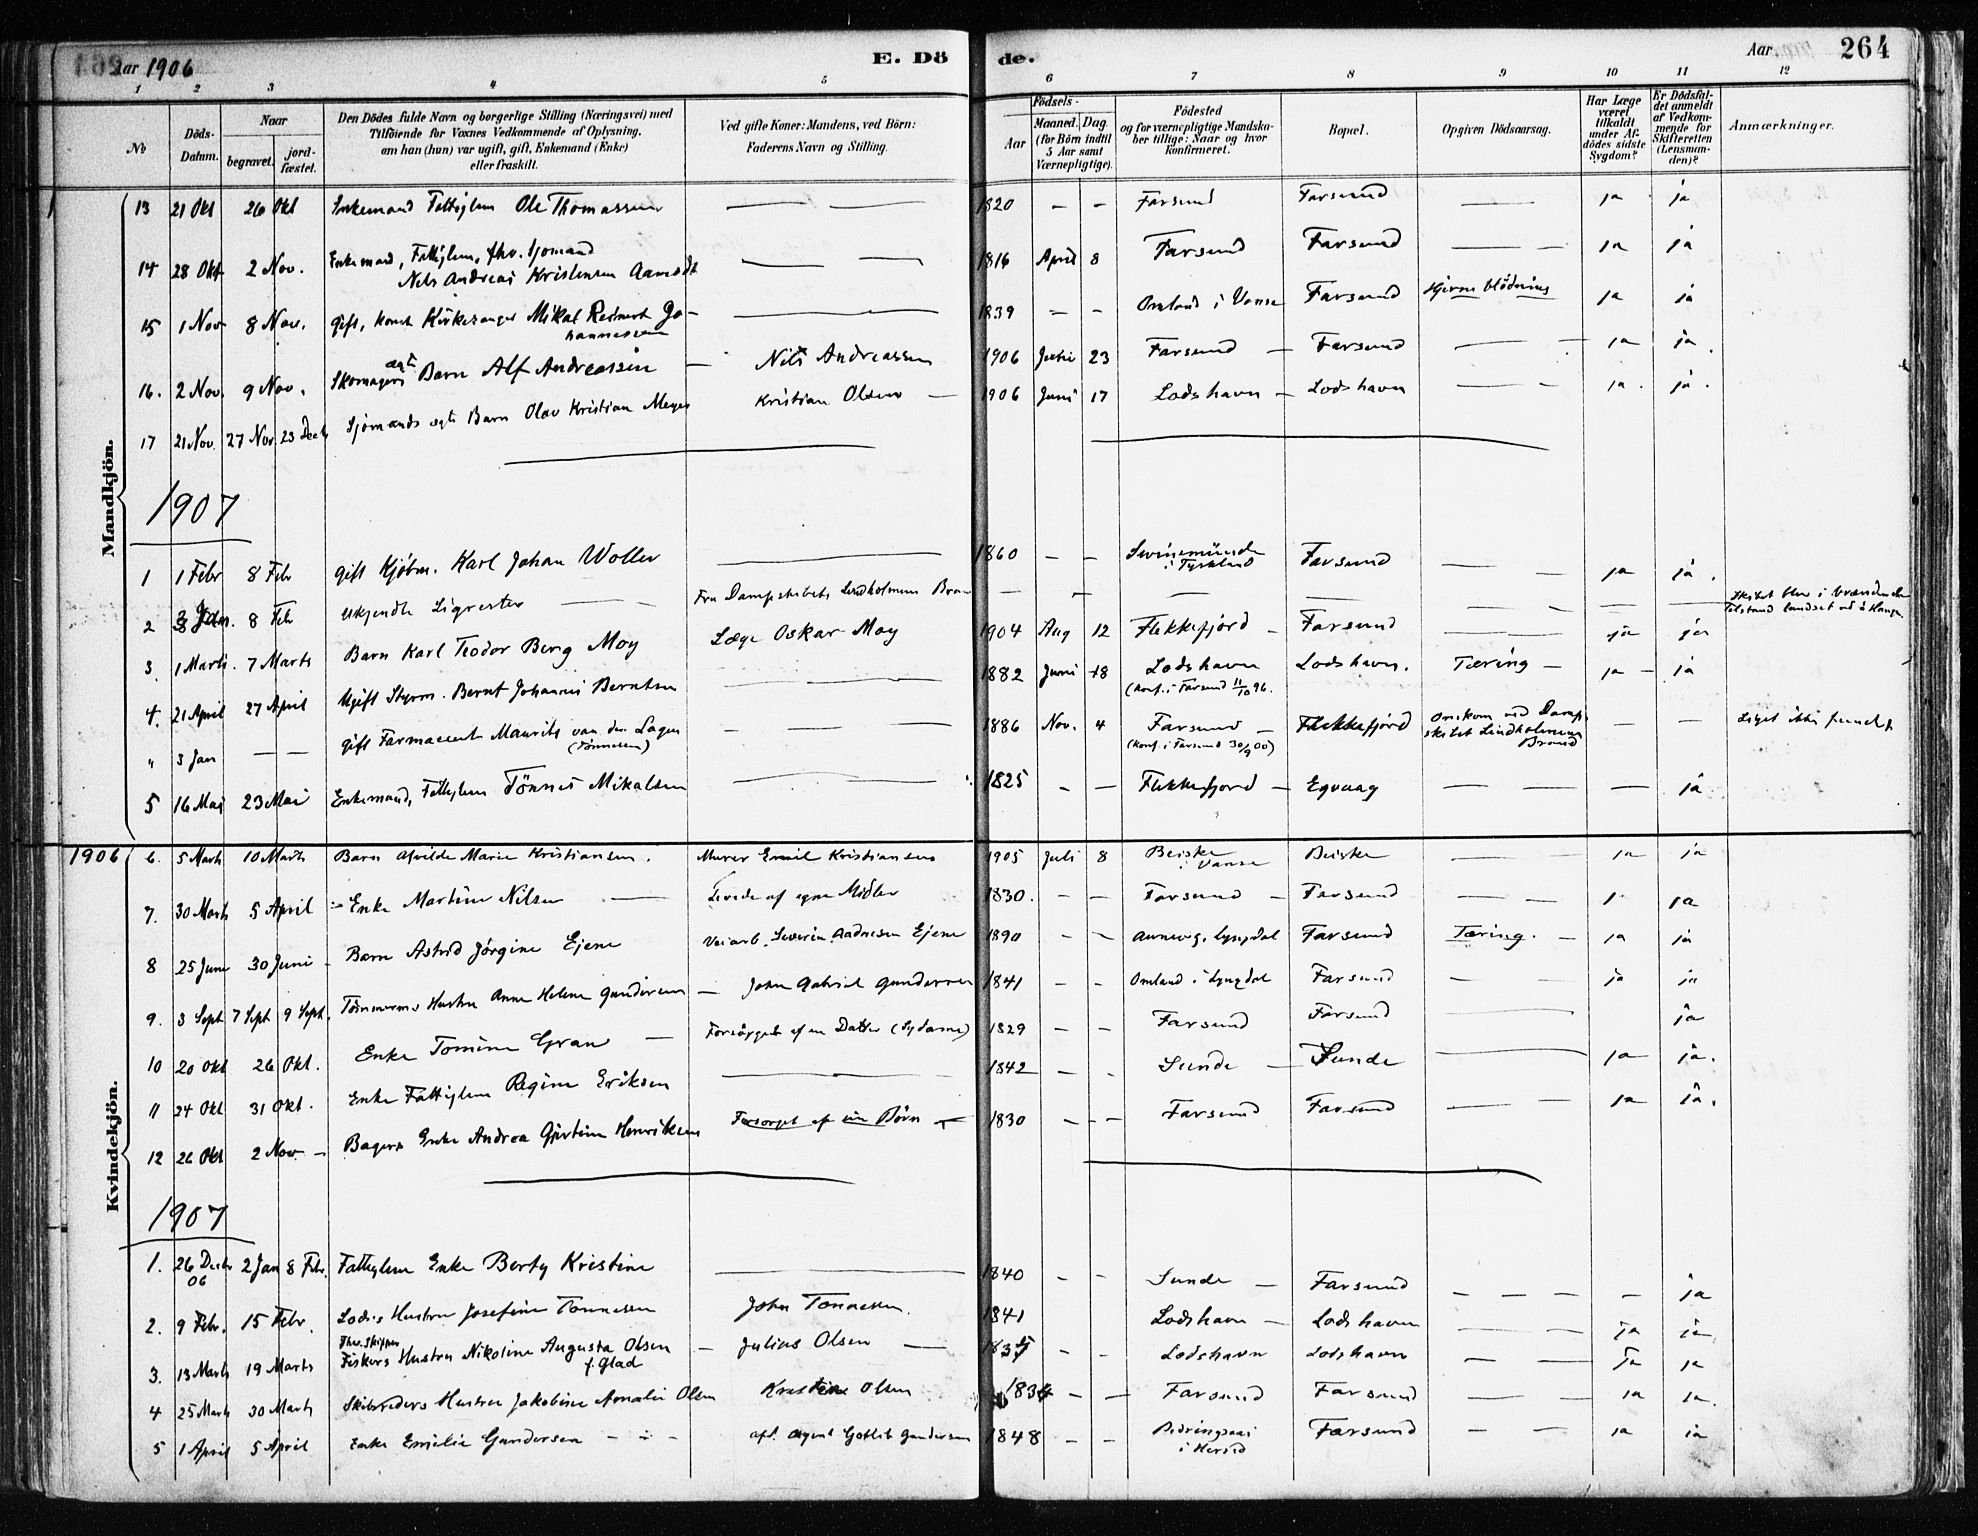 Aar 1906 E. Döde. Aar 264
1 2 3 4 5 6 7 8 9 10 11 12
No
Döds-Datum.
Naar
begravet.
jordfæstet.
Den Dödes fulde Navn og borgerlige Stilling (Næringsvei) med
Tilföiende for Voxnes Vedkommende af Oplysning,
om han (hun) var ugift, gift, Enkemand (Enke)
eller fraskilt.
Ved gifte Koner: Mandens, ved Börn:
Faderens Navn og Stilling.
Födsels-
Aar
Maaned. Dag.
(for Börn indtil
5 Aar samt
Værnepligtige).
Födested
og for værnepligtige Mandskaber tillige: Naar og hvor
konfirmeret.
Bopæl.
Opgiven Dödsaarsag.
Har Læge
været
tilkaldt
under Afdödes sidste
Sygdom?
Er Dödsfaldet anmeldt
af Vedkommende for
Skifteretten
(Lensmanden)?
Anmærkninger.
Mandkjön.
13 21 Okt 26 Okt Enkemand Fattiglem Ole Thomassen — — 1820 - - Farsund Farsund — ja ja
14 28 Okt 2 Nov. Enkemand, Fattiglem, fhv. Sjømand
Nels Andreas Kristensen Aamodt — — 1816 April 8 Farsund Farsund — - ja ja
15 1 Nov 8 Nov. Gift, Kirkesanger Mikal Reinert Jo-
hannessen — 1839 - - Omland i Vanse Farsund Hjerneblödning ja ja
16. 2 Nov. 9 Nov. Skomagers ægte Barn Alf Andreassen — Nils Andreassen 1906 Juli 23 Farsund — Farsund — - ja ja.
17 21 Nov. 27 Nov. 23 Decb Sjømands ægte Barn Olav Kristian Meyer Kristian Olsen — 1906 Juni 17 Lodshavn — Lodshavn — - ja. ja.
1907
1 1 Febr 8 Feb gift Kjöbm. Karl Johan Woller — 1860 - - Swinemünde
i Tyskland Farsund — - ja ja.
2 3 Jan. 8 Feb ukjendte Ligrester — Fra Dampskibets Lindholmens Brand — - — — - — — Skibet blev i brændende
Tilstand landsat ved
3. 1 Marts. 7 Marts Barn Karl Teodor Berg Moy Læge Oskar Moy 1904 Aug 12 Flekkefjord — Farsund — ja ja
4. 21 April 27 April Ugift Styrm. Bernt Johannes Berntsen — — 1882 Juni 18 Lodshavn
(Konf. i Farsund 11/10 96. Lodshavn. Tæring — ja — ja
" 3 Jan — — gift Farmaceut Maurits van der Lagen
(Tönnesen) — - — 1886 Nov. 4 Farsund —
(Konf. i Farsund 30/9 00) Flekkefjord Omkom ved Damp-
skibet Lindholmens
Brand — — Liget ikke fundet
5 16 Mai 23 Mai Enkemand, Fattiglem Tönnes Mikalsen — — 1825 - — Flekkefjord — Egvaag — — — ja
Kvindekjön.
1906 6. 5 Marts 10 Marts Barn Marie Kristiansen. Murer Emil Kristiansen 1905 Juli 8 Beiske
i Vanse Beiske — - ja ja
7. 30 Marts 5 April - Enke Martine Nilsen — Levede af egne Midler 1830. - - Farsund — Farsund — - ja
8 25 June 30 Juni - Barn Astrid Jörgine Ejene Veiarb. Severin Aadnesen Ejene 1890 - - Lyngdal Farsund Tæring. — ja ja
9. 3 Sept 7 Sept 9 Sept. Tömmerms Hustru Anne Helene Gundersen — John Gabriel Gundersen 1841 - - Omland i Lyngdal Farsund — - ja ja
10 20 Okt 26 Okt. Enke Tomine Gran — Forsörget af en Datter (Sydame) 1829 - - Farsund Farsund — ja
11 24 Okt 31 Okt. Enke Fattiglem Regine Eriksen — 1842 - - Sunde — Sunde — ja ja.
12 26 Okt 2 Nov. — Bagers Enke Andrea Gjertine Henriksen Forsorget af sine Börn — 1830 - - Farsund Farsund — - ja ja.
1907
1. 26 Decbr
06 2 Jan 8 Febr. Fattiglem Enke Berty Kristine — 1840 - - Sunde — Farsund — - — ja
2. 9 Febr. 15 Febr. Lods's Hustru Josefine Tönnesen John Tönnesen. 1841 Lodshavn — Lodshavn — - ja ja
3. 13 Marts 19 Marts Fhv. Skipper
Fiskers Hustru Nikoline Augusta Olsen
f. Glad — Julius Olsen — - - Lodshavn Lodshavn — - ja ja
4 25 Marts 30 Marts Skibsreders Hustru Jakobine Amalie Olsen Olsen 1834 - — Farsund Farsund — - ja ja.
5 1 April 5 April Enke Emilie Gundersen - - - afd. Agent Gotlib Gundersen 1848 - -
i Farsund — - ja ja